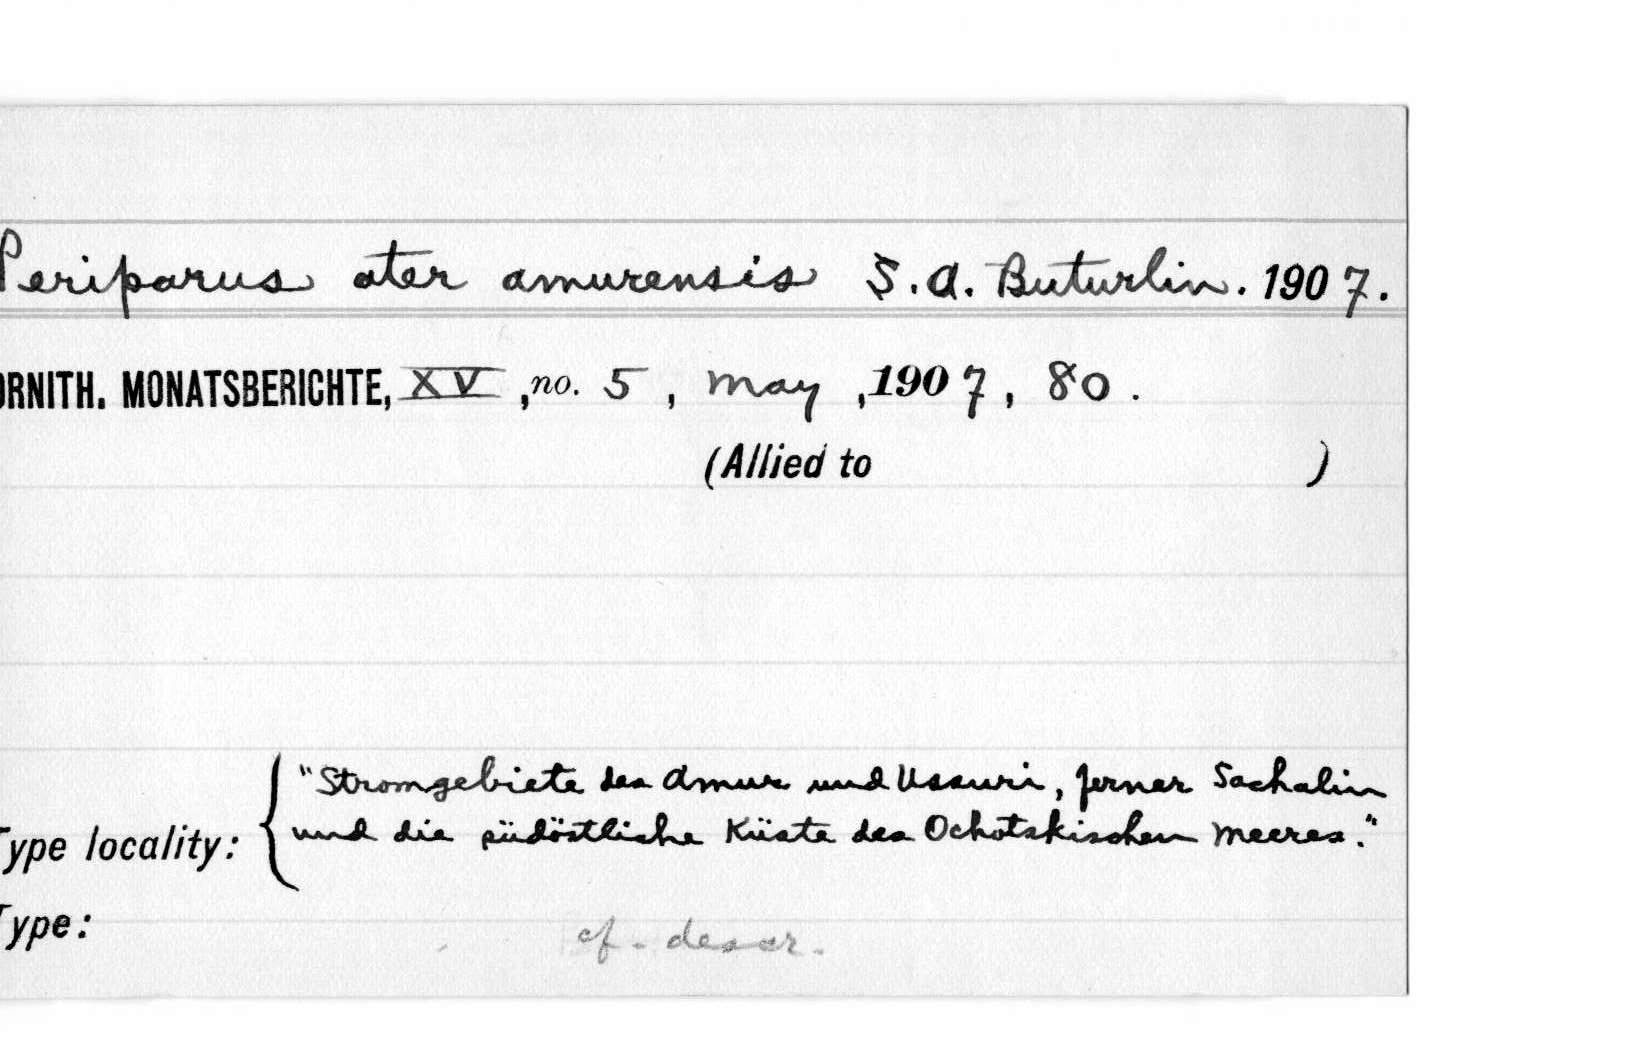 Periparus ater amurensis S.A. Buturlin. 1907.
ORNITH. MONATSBERICHTE, XV, no. 5, May, 1907, 80.
(Allied to )
"Stromgebiete des Amur und Ussuri, ferner Sachalin
Type locality: und die südöstliche Küste des Ochotskischen Meeres."
Type: cf. descr.